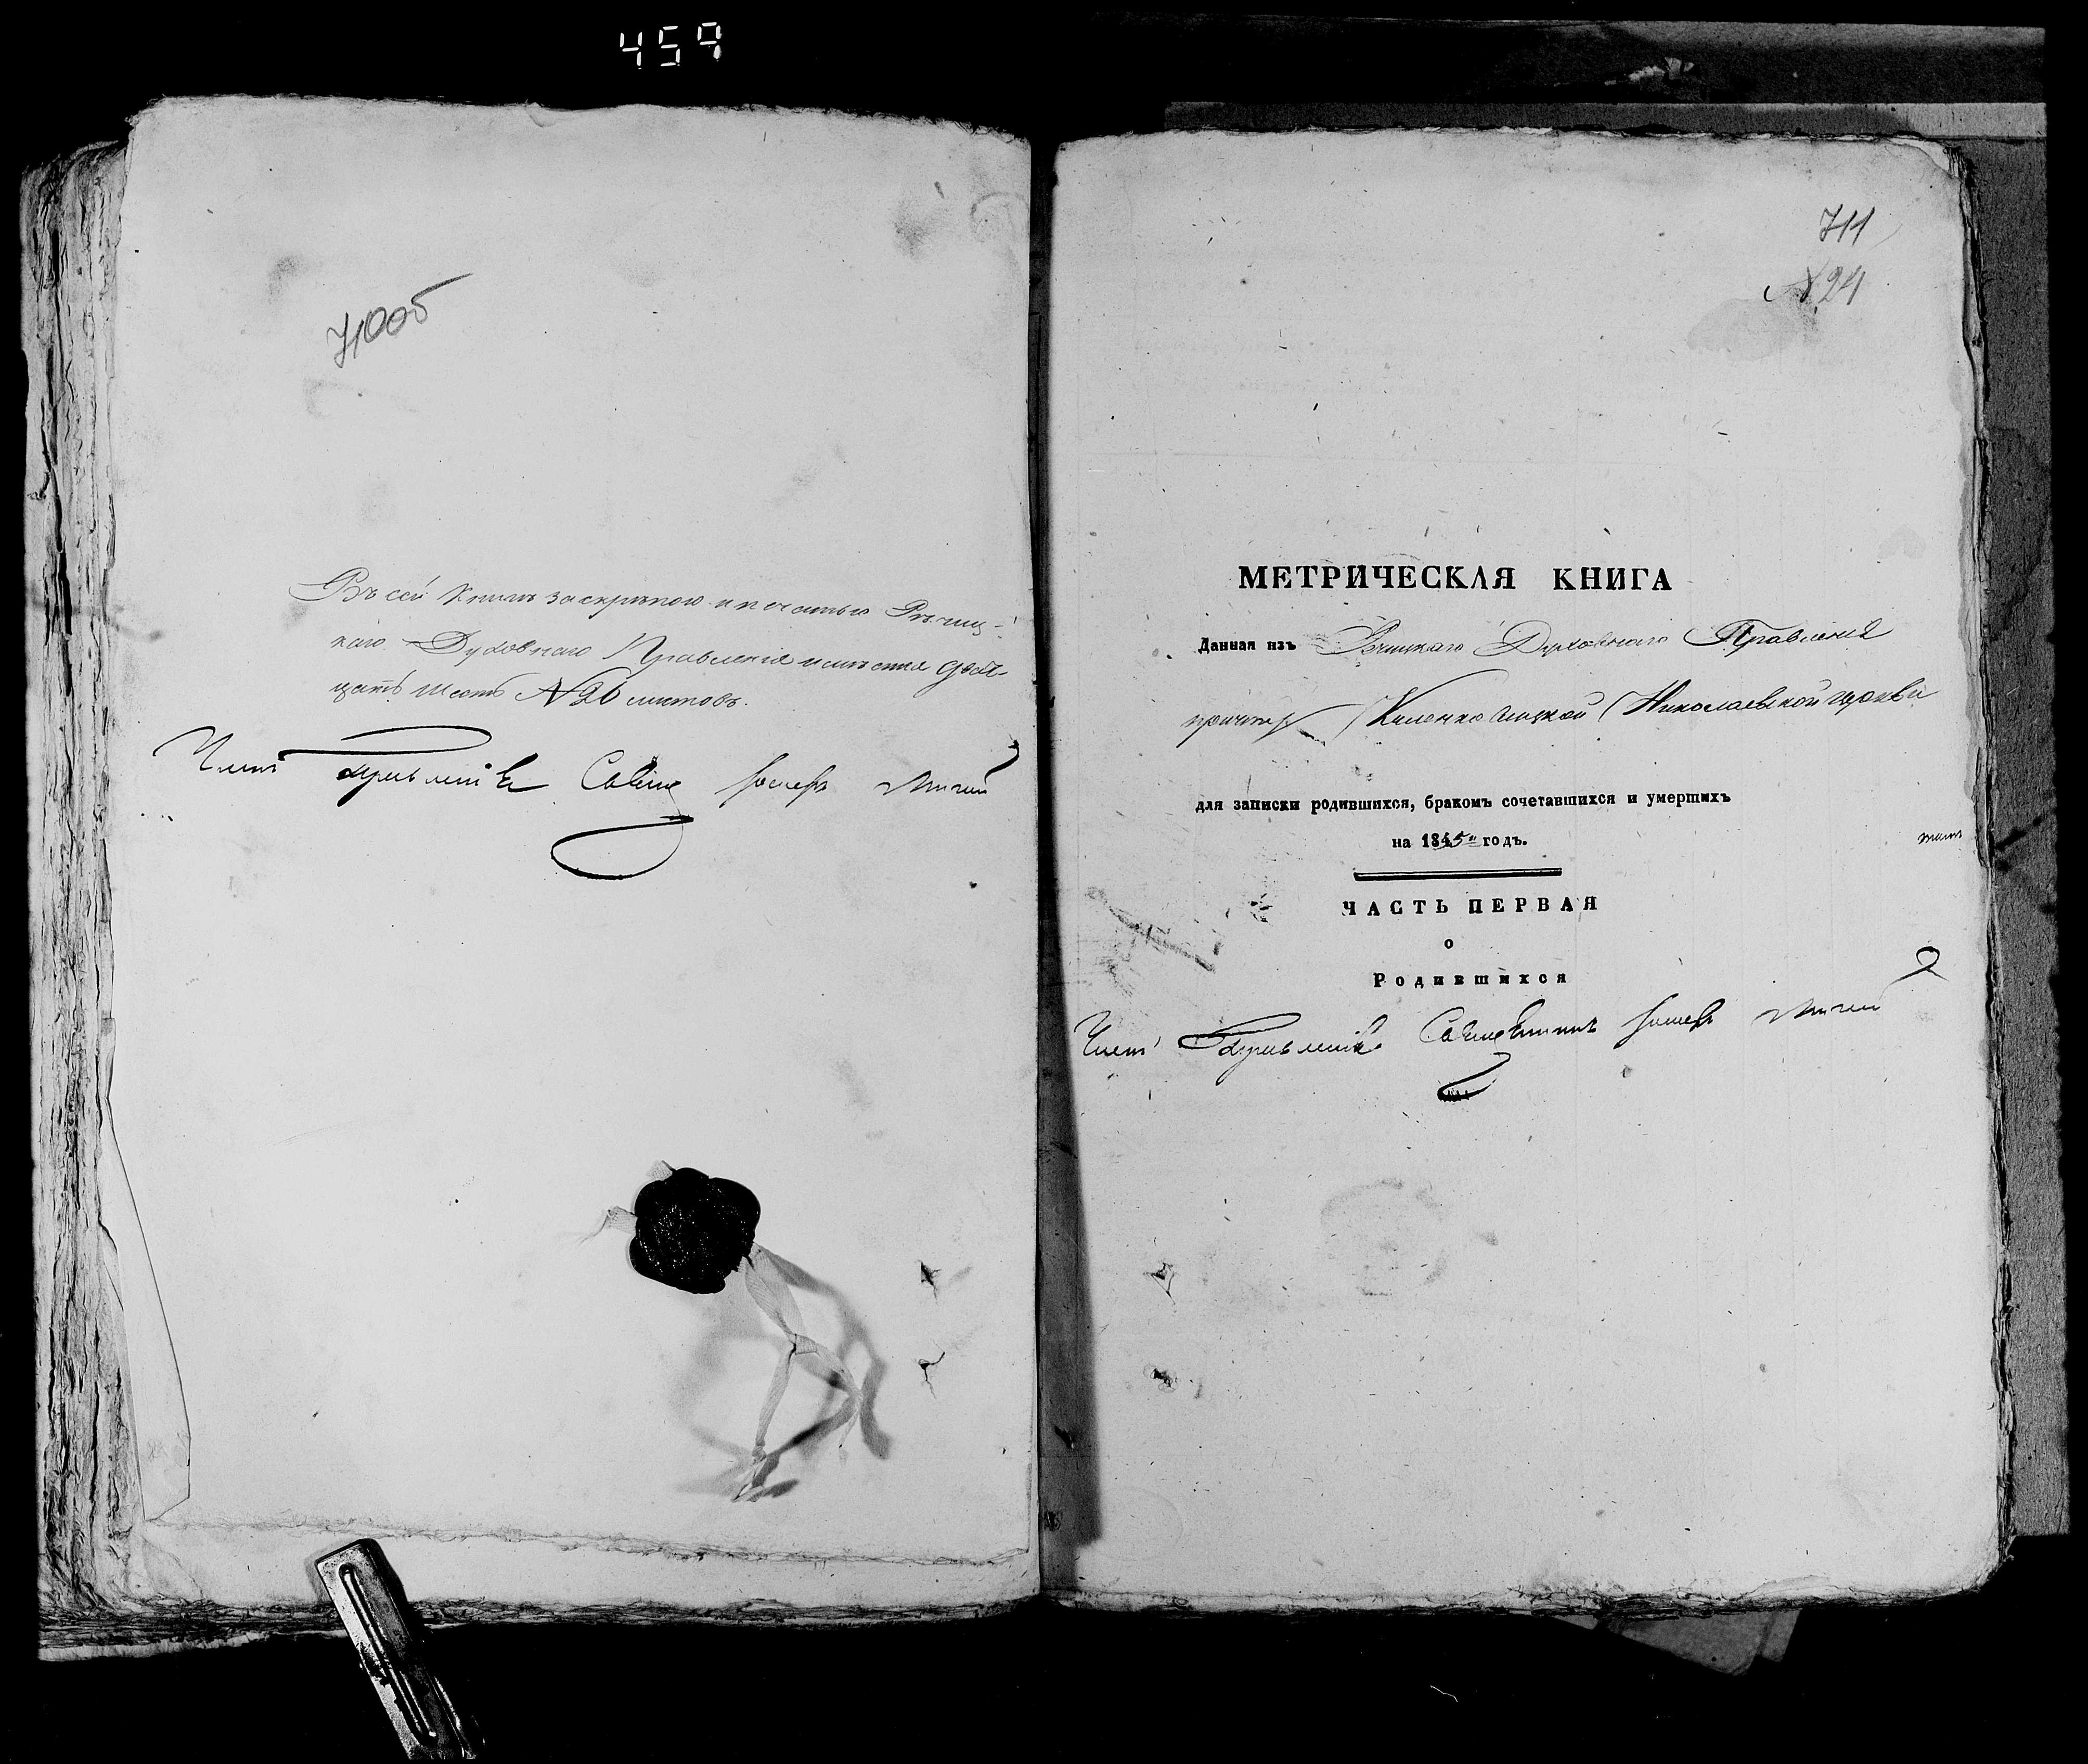 459
710об
Въ сей книгѣ за скрѣпою и печатью Рѣчиц-
каго Духовнаго Правления двад-
цать шесть №26 листовъ.
Членъ Правленія
711
№24
МЕТРИЧЕСКАЯ КНИГА
Данная изъ Рѣчицкаго Духовнаго Правления
причту Николаевской церкви
для записки родившихся, бракомъ сочетавшихся и умершихъ
на 1845й годъ.
ЧАСТЬ ПЕРВАЯ
о
Родившихся
Членъ Правленія Священникъ